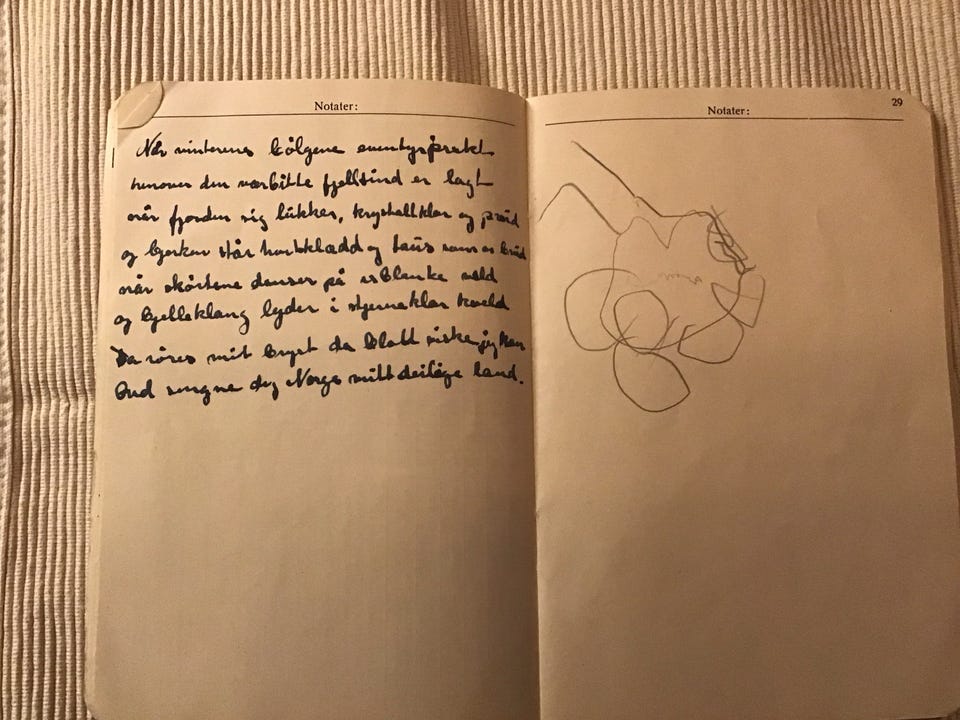 Notater:
Når vinterens bølgene eventyrprakt
henover den värbitte fjelltind er lagt
når fjorden sig lukker, krystallklar og
og bjerken står hvitklædd og taus som en brud
når sköitene danser på isblanke
og bjelleklang lyder i stjerneklar kveld
Da röres mit bryst da blott viske jeg kan
Gud signe dig Norge mitt deilige land.
29
Notater: